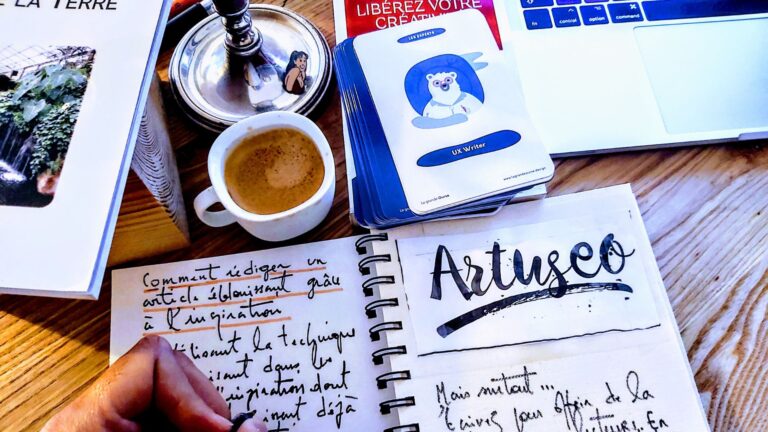 DE LA TERRE
LIBÉREZ VOTRE
CRÉATIVI
LES EXPERTS
UX Writer
La grande Ourse
www.lagrandeourse.design
control
option
command
Comment rédiger un
article éblouissant grâce
à l'inspiration
utilisant la technique
puisant dans les
d'inspiration dont
déjà
Artuseo
Mais surtout...
Écrivez pour offrir de la
En